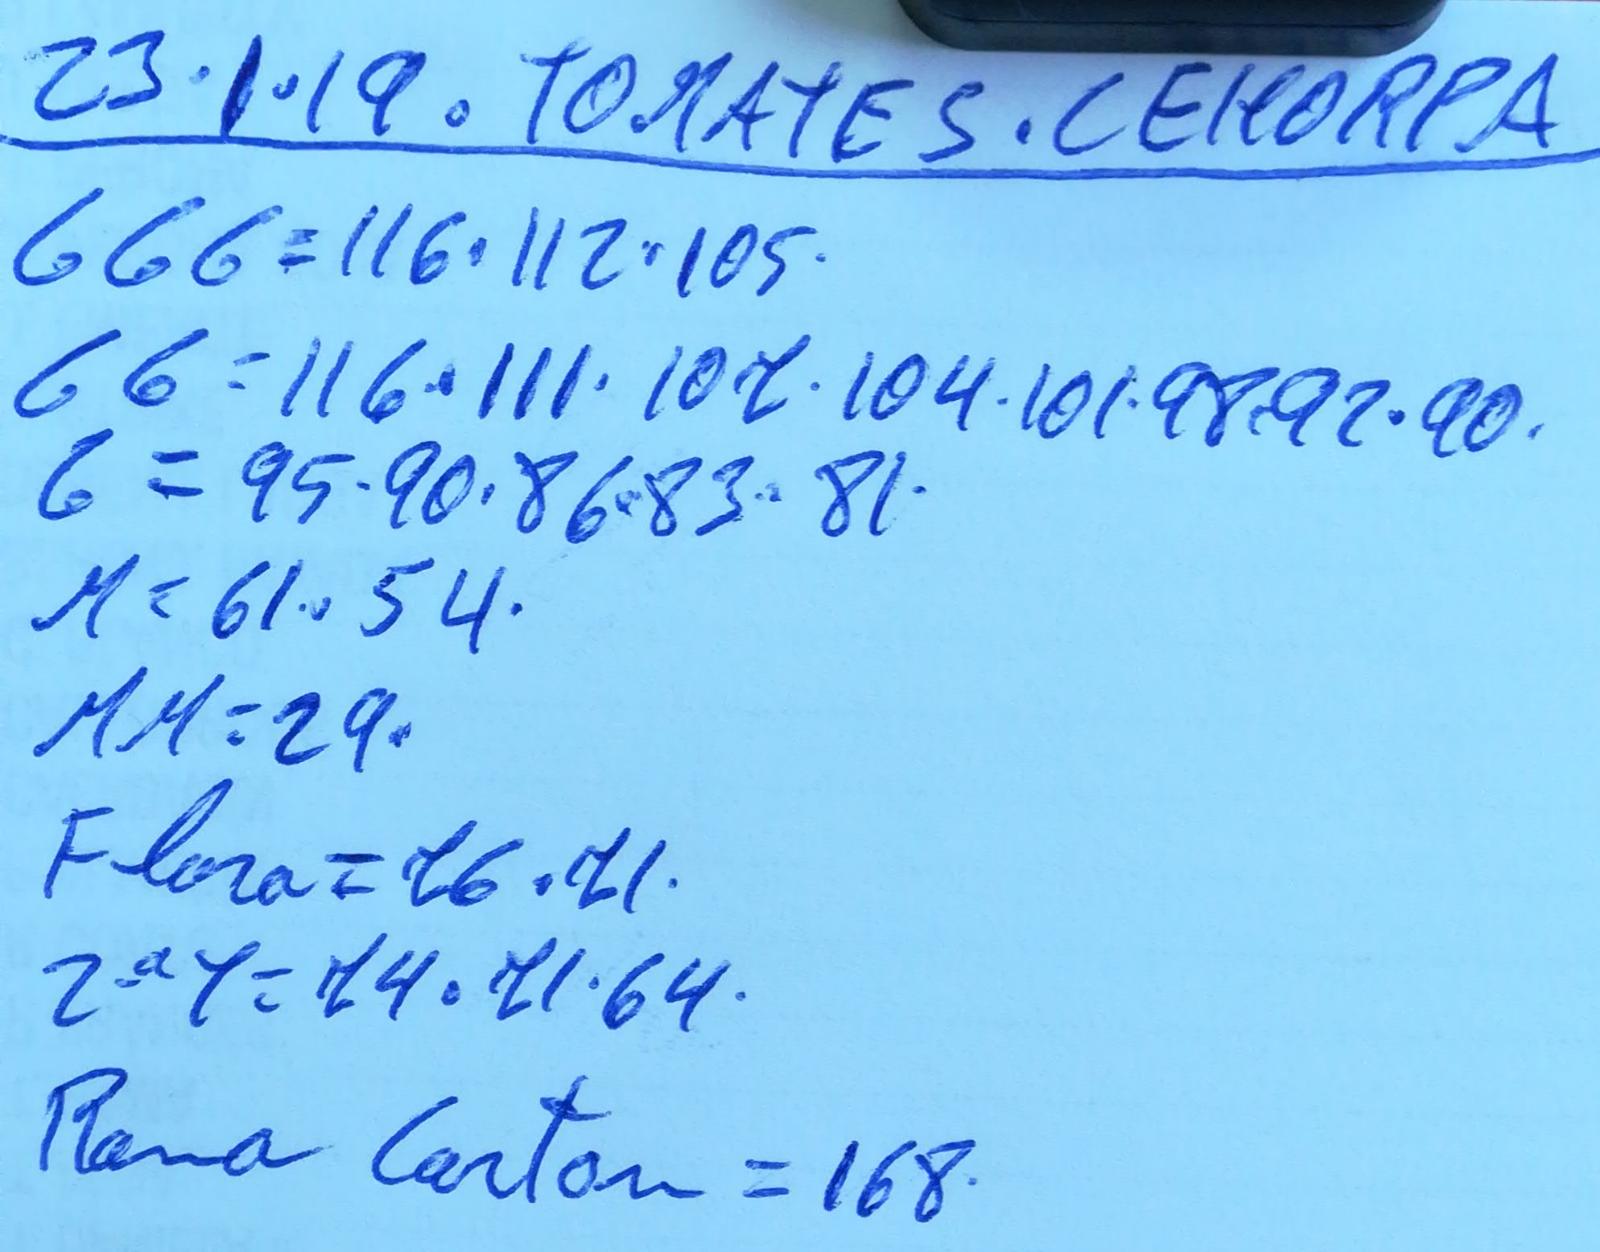 23.1.19. TOMATES. CEHORPA
GGG=116.112.105.
GG=116.111.107.104.101.98.92.90.
G=95.90.86.83.81.
M=61.54.
MM=29.
Flora=76.71.
2ªT=74.71.64.
Rama Carton=168.